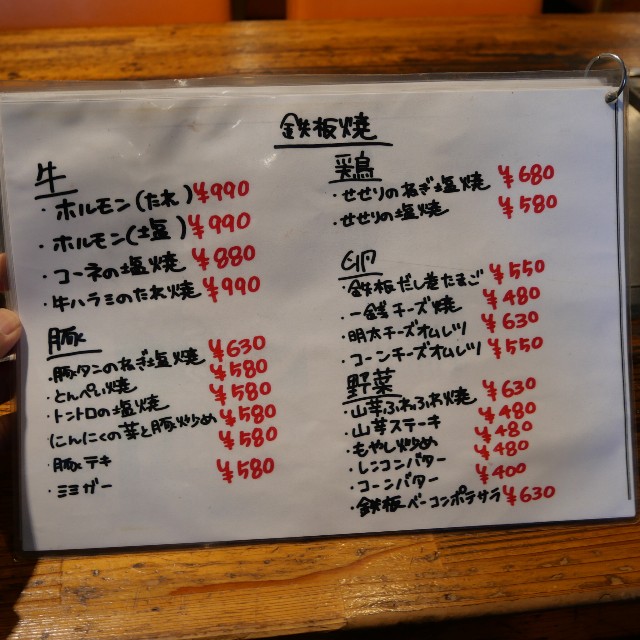 鉄板焼
牛
・ホルモン(たれ) ¥990
・ホルモン(塩) ¥990
・コーネの塩焼 ¥880
・牛ハラミのたれ焼 ¥990
豚
・豚タンのねぎ塩焼 ¥630
・とんぺい焼 ¥580
・トントロの塩焼 ¥580
・にんにくの芽と豚炒め ¥580
・豚テキ ¥580
・ミミガー ¥580
鶏
・せせりのねぎ塩焼 ¥680
・せせりの塩焼 ¥580
卵
・鉄板だし巻たまご ¥550
・一銭チーズ焼 ¥480
・明太チーズオムレツ ¥630
・コーンチーズオムレツ ¥550
野菜
・山芋ふわふわ焼 ¥630
・山芋ステーキ ¥480
・もやし炒め ¥480
・レンコンバター ¥480
・コーンバター ¥400
・鉄板ベーコンポテサラ ¥630